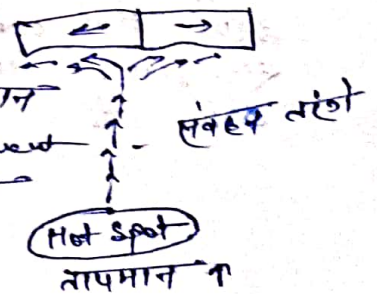 संवहन तरंगे
Hot Spot
तापमान ↑